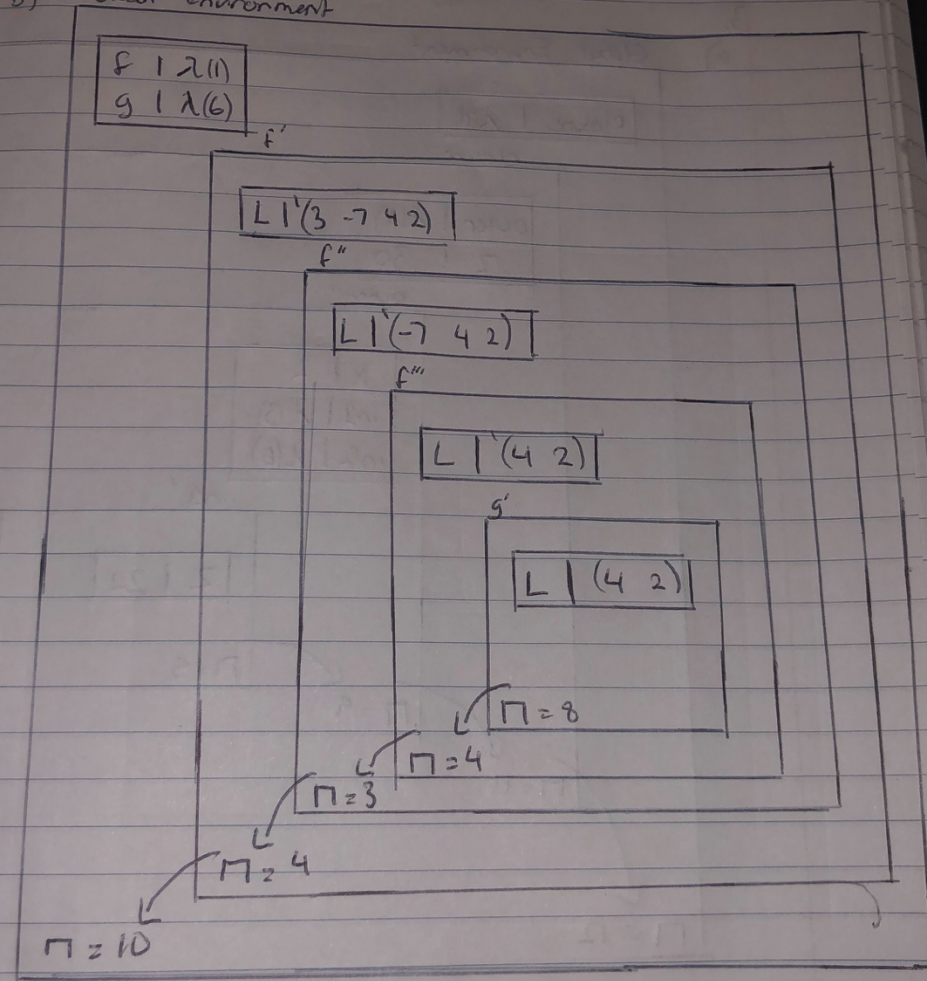 environment
f | λ(1)
g | λ(6)
f'
L | '(3 -7 4 2)
f''
L | '(-7 4 2)
f'''
L | '(4 2)
g'
L | (4 2)
Π = 8
Π = 4
Π = 3
Π = 4
Π = 10